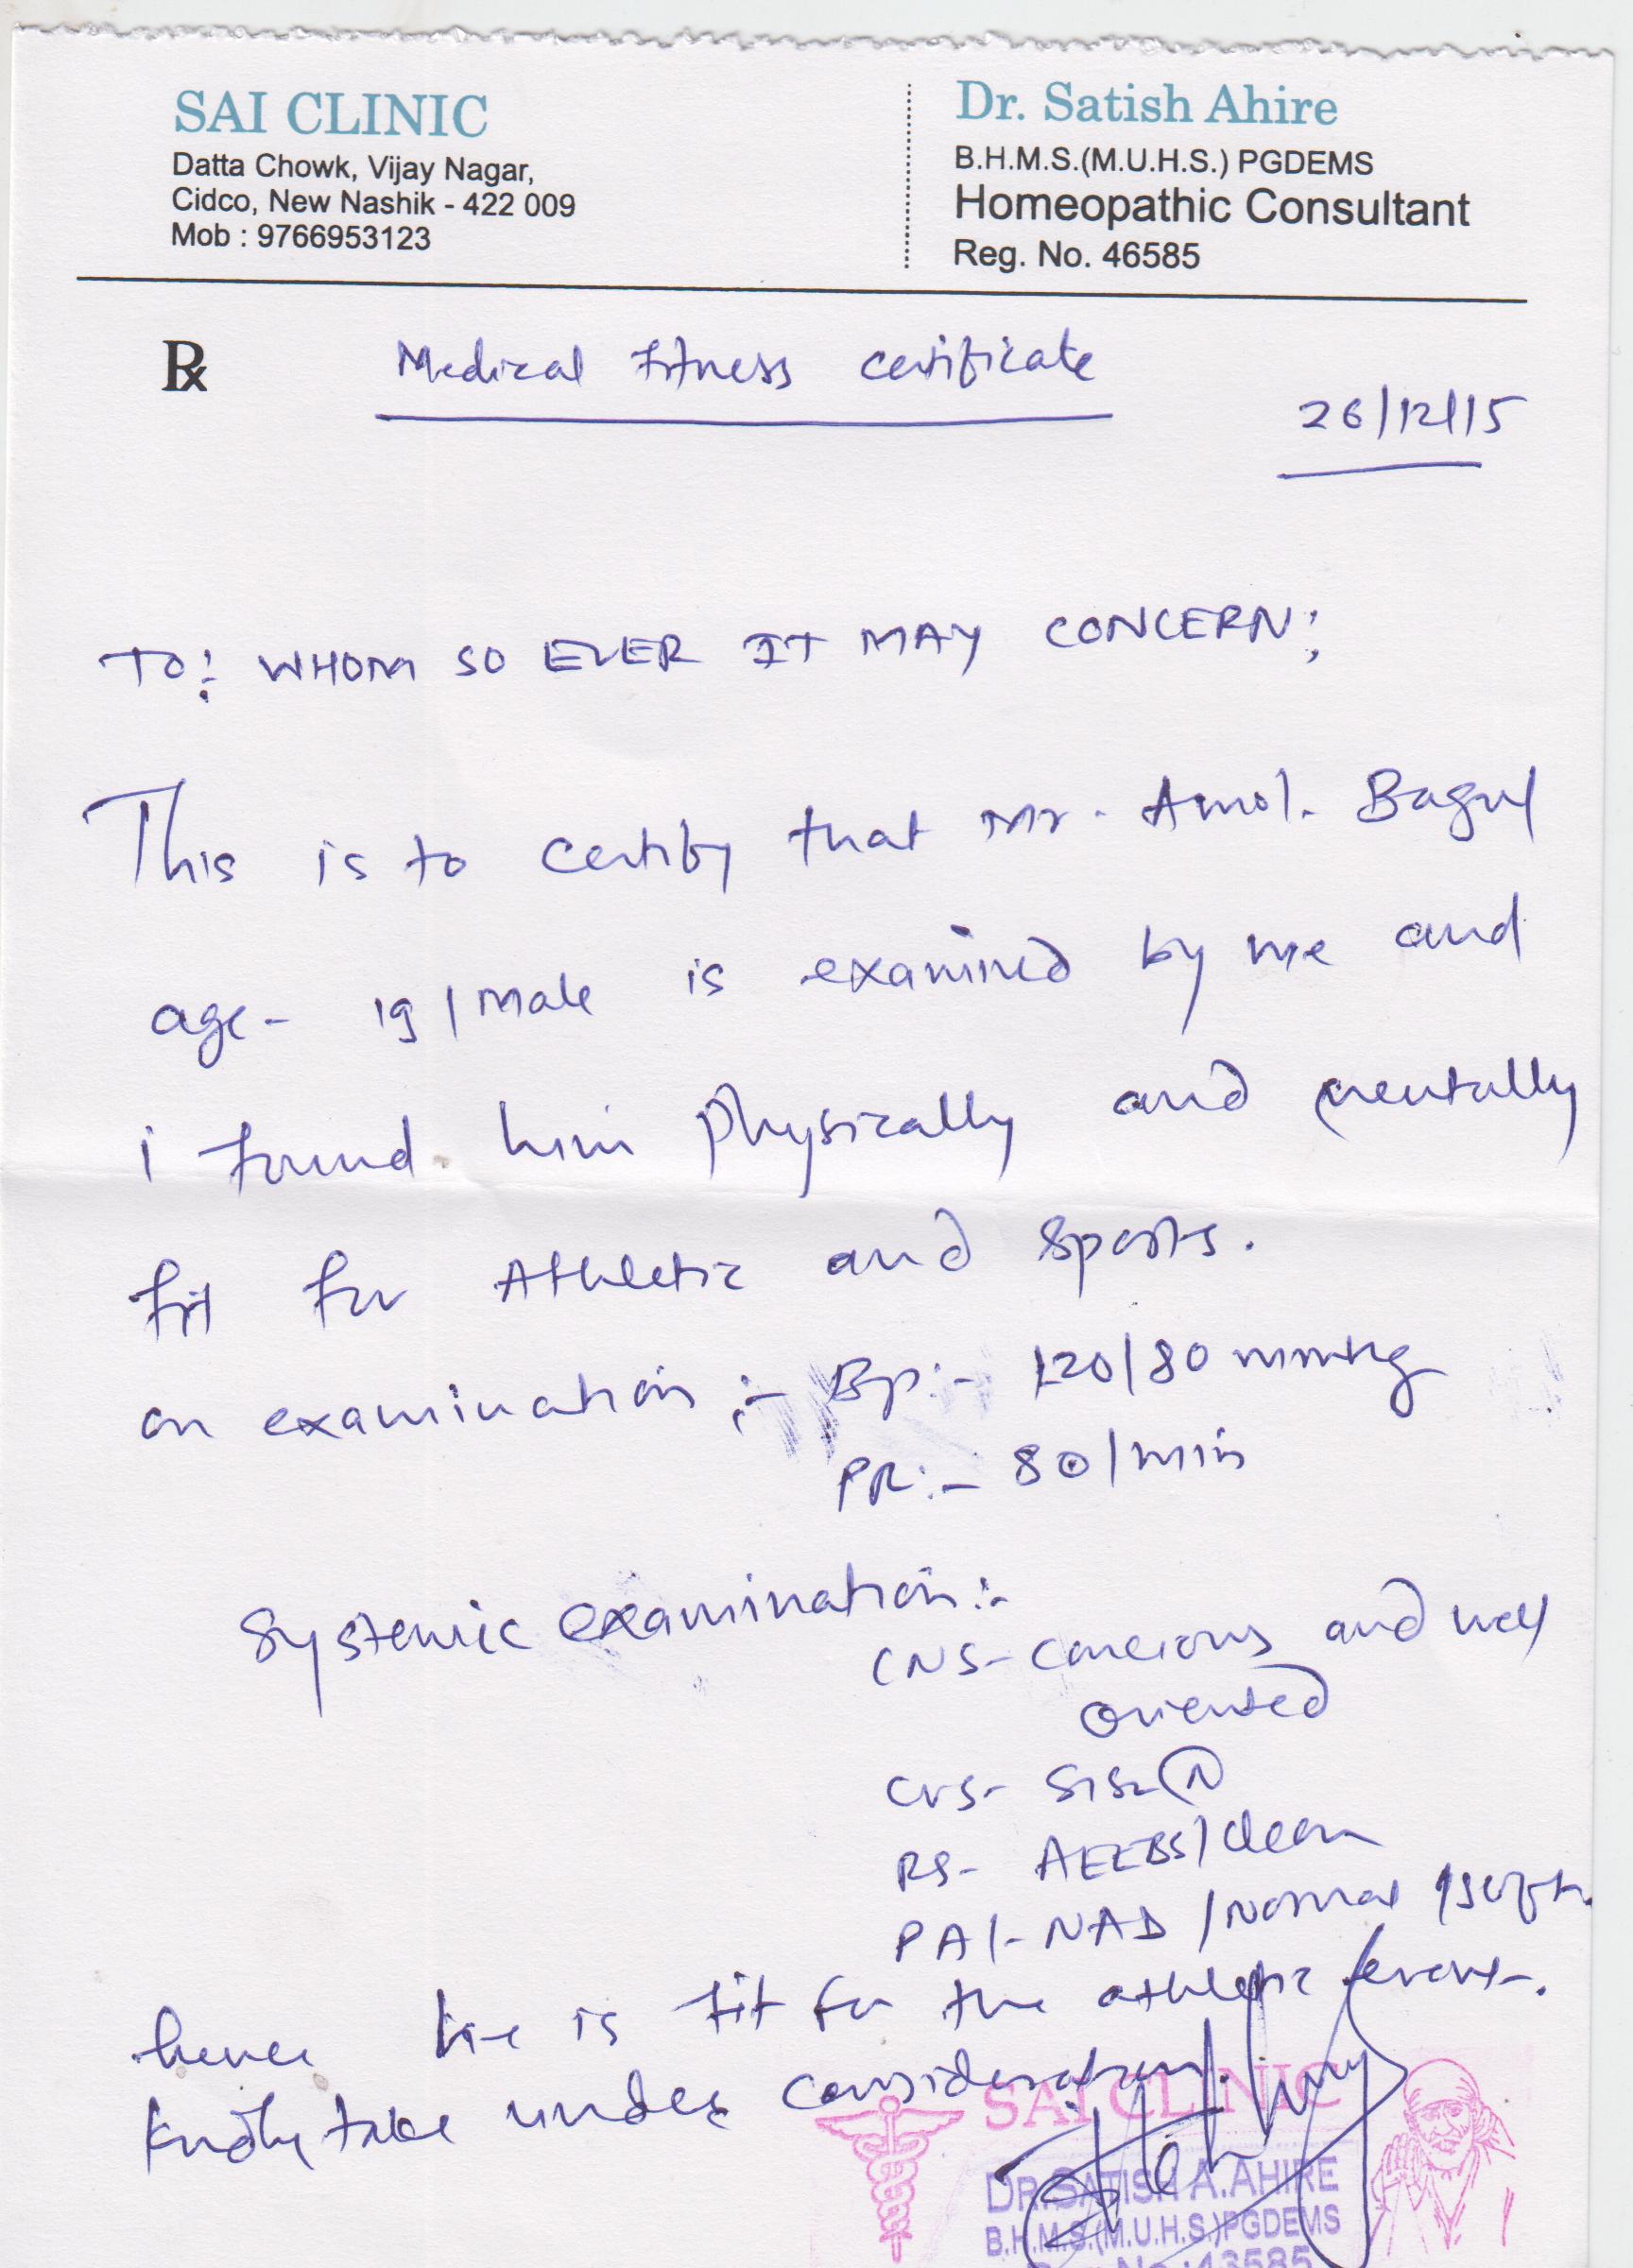 SAI CLINIC
Datta Chowk, Vijay Nagar,
Cidco, New Nashik - 422 009
Mob : 9766953123
Dr. Satish Ahire
B.H.M.S.(M.U.H.S.) PGDEMS
Homeopathic Consultant
Reg. No. 46585
Rx Medical fitness certificate
26/12/15
TO: WHOM SO EVER IT MAY CONCERN;
This is to certify that Mr. Amol. Bagul
age- 19/Male is examined by me and
i found him physically and mentally
fit for Athletic and sports.
on examination :- Bp:- 120/80 mmHg
PR:- 80/min
Systemic examination:-
CNS- concious and well
oriented
CVS- S1S2 (N)
RS- AEEBS/clear
PA/- NAD /Normal /soft.
hence he is fit for the athletic event.
Kindly take under consideration.
SAI CLINIC
DR. SATISH A. AHIRE
B.H.M.S.(M.U.H.S.)PGDEMS
Reg. No.:43585